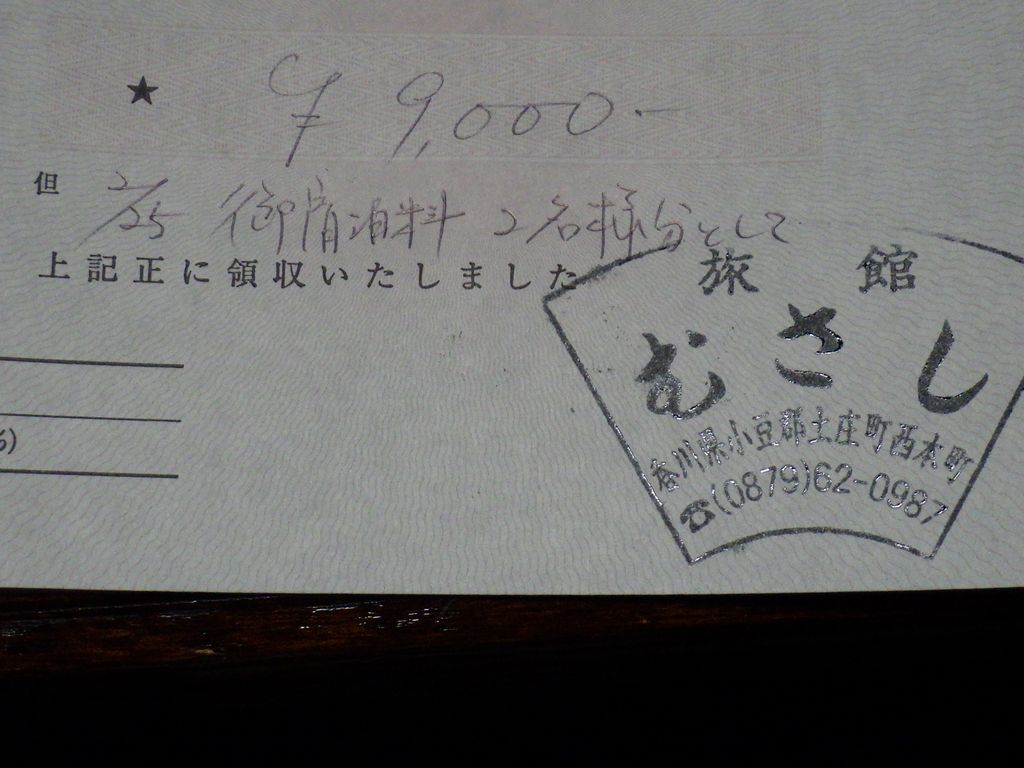 ★ ¥9,000-
但 2/25 御宿泊料 2名様分として
上記正に領収いたしました
旅館
むさし
香川県小豆郡土庄町西本町
☎(0879)62-0987